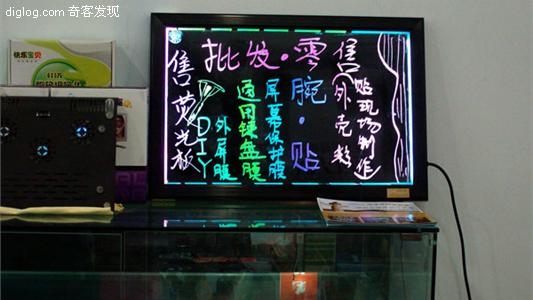 diglog.com 奇客发现
快乐宝贝
批发·零售
售荧光板
DIY
外屏膜
通用键盘膜
屏幕保护膜
腕·贴
(外壳彩贴现场制作)